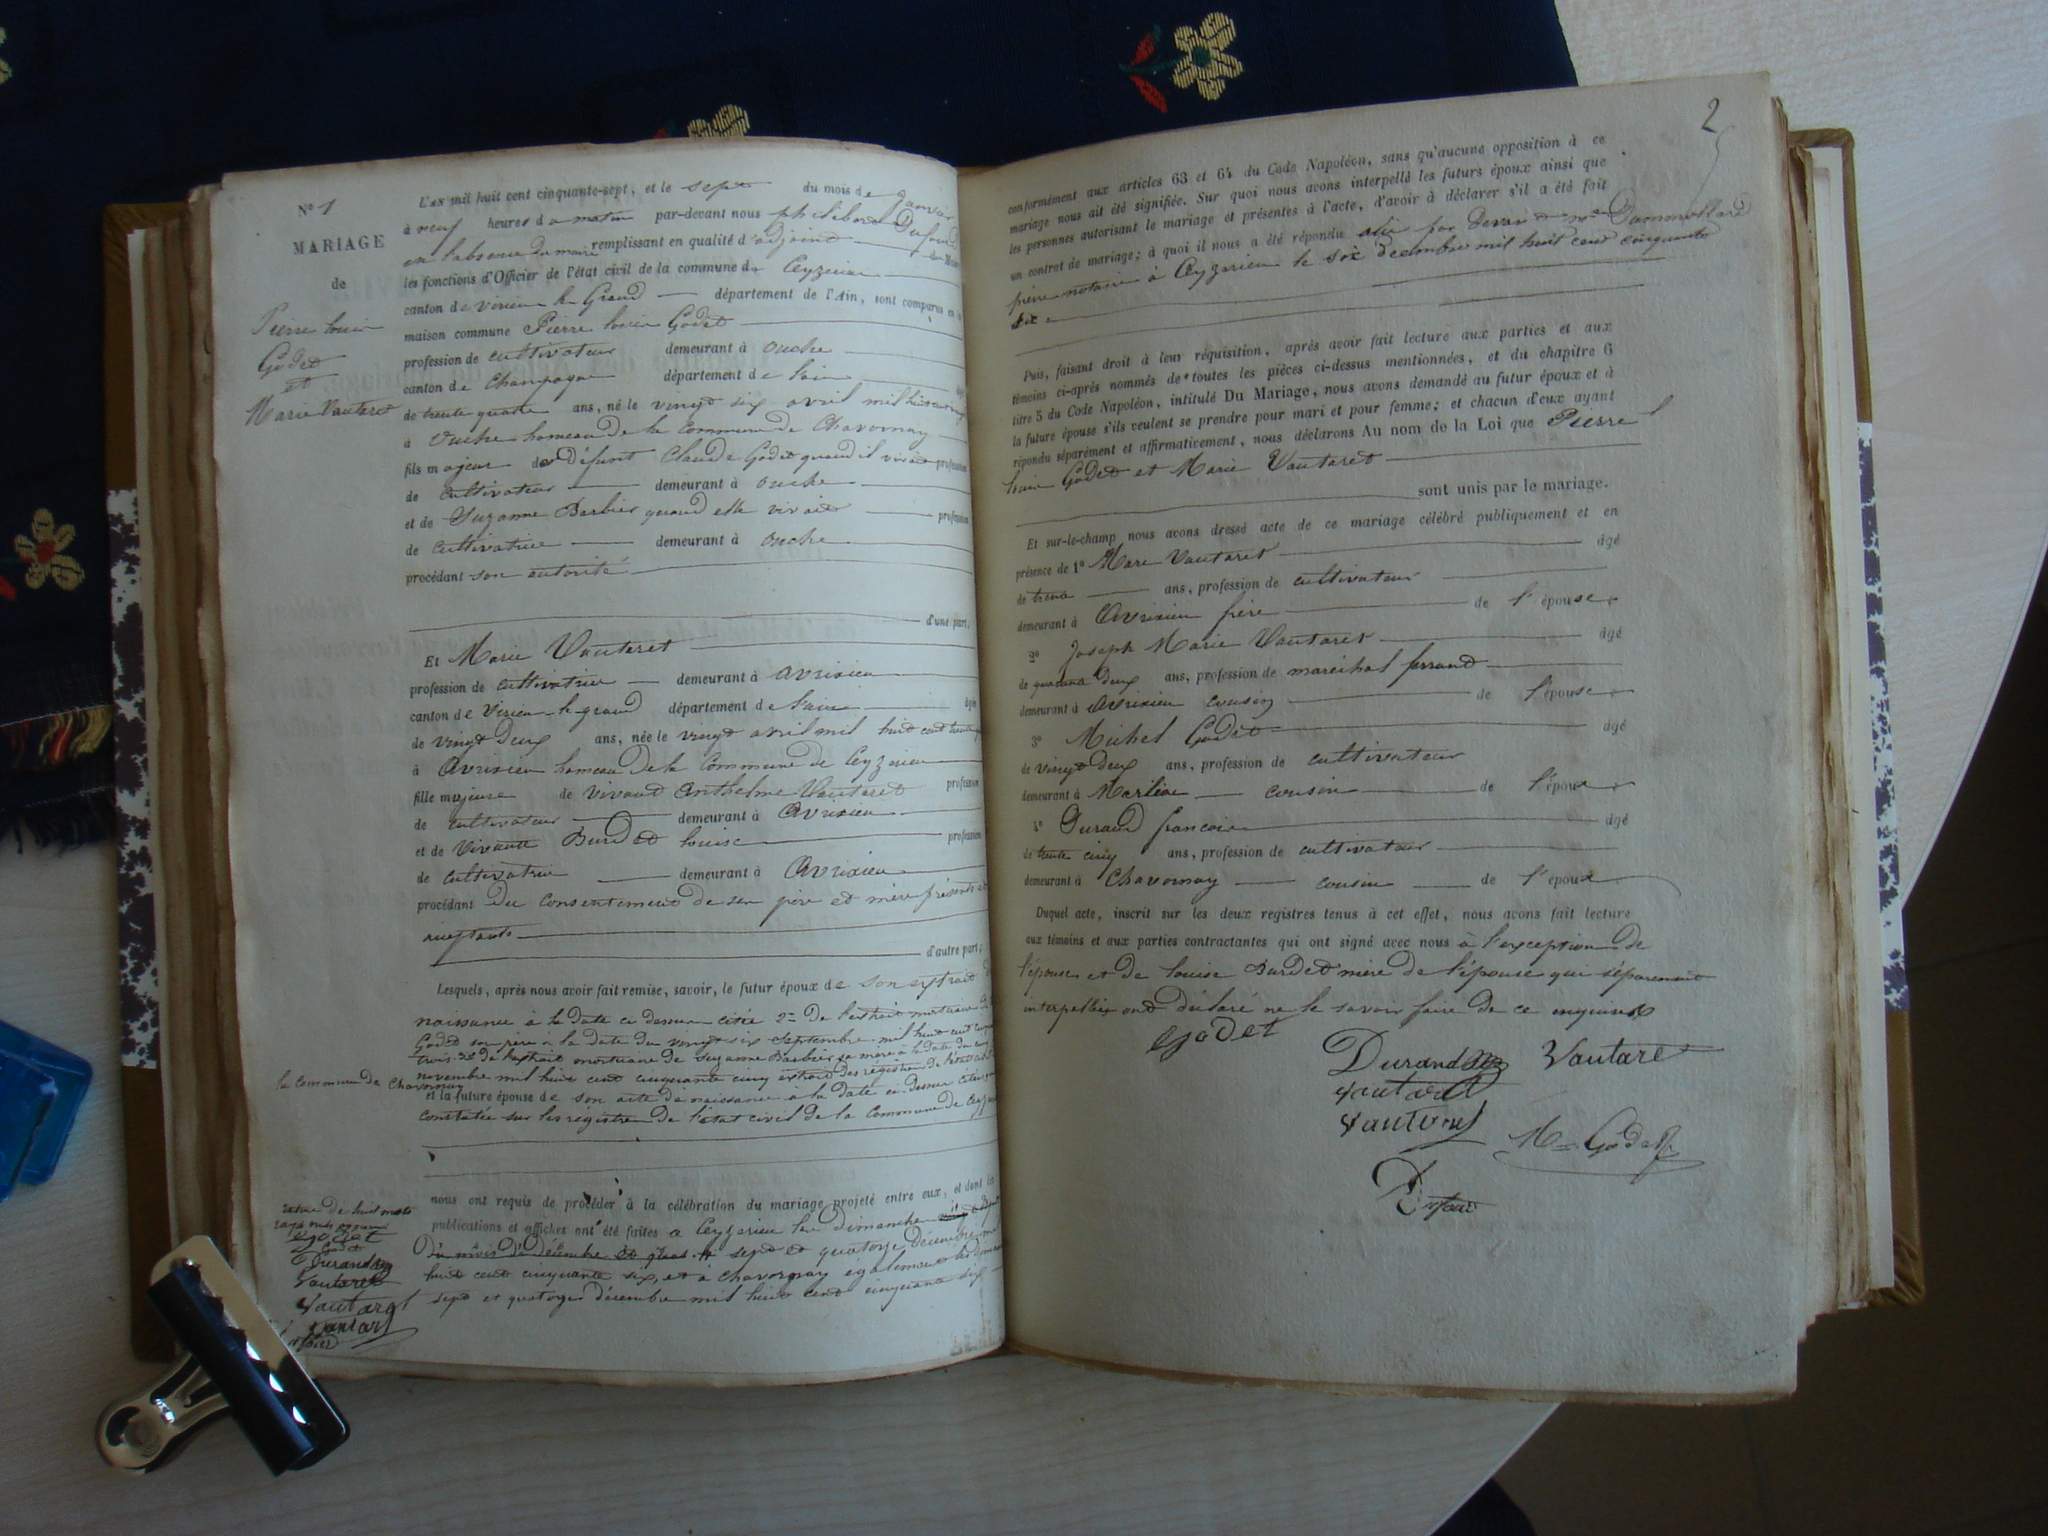 N° 1
MARIAGE
de
Pierre Louis
Godet
et
Marie Vautaret
L'an mil huit cent cinquante-sept, et le sept du mois de Janvier
à neuf heures du matin par-devant nous philibert Dufour
en l'absence du maire remplissant en qualité d'adjoint
les fonctions d'Officier de l'état civil de la commune de Ceyzerieu
canton de virieu le Grand département de l'Ain, sont comparus en la
maison commune Pierre Louis Godet
profession de cultivateur demeurant à ouche
canton de Champagne département de l'ain âgé
de trente quatre ans, né le vingt six avril mil huit cent vingt
à ouche hameau de la Commune de Chavornay
fils majeur de Défunt Claude Godet quand il vivait profession
de cultivateur demeurant à ouche
et de Suzanne Barbier quand elle vivait profession
de cultivatrice demeurant à ouche
procédant son autorité
d'une part;
Et Marie Vautaret
profession de cultivatrice demeurant à avrissieu
canton de Virieu le grand département de l'ain âgée
de vingt deux ans, née le vingt avril mil huit cent trente
à Avrissieu hameau de la Commune de Ceyzerieu
fille majeure de vivant Anthelme Vautaret profession
de cultivateur demeurant à Avrissieu
et de Vivante Burdet Louise profession
de cultivatrice demeurant à Avrissieu
procédant du consentement de ses père et mère présents et
acceptants
d'autre part;
Lesquels, après nous avoir fait remise, savoir, le futur époux de son extrait de
naissance à la date ci dessus citée 2° De l'extrait mortuaire de
Godet son père à la date du vingt six septembre mil huit cent cinquante
trois 3° de l'extrait mortuaire de Suzanne Barbier sa mère à la date du cinq
novembre mil huit cent cinquante cinq extrait des registres de l'état civil de
la commune de Chavornay
et la future épouse de son acte de naissance à la date ci-dessus citée
constatée sur les registres de l'état civil de la Commune de Ceyzerieu
nous ont requis de procéder à la célébration du mariage projeté entre eux, et dont les
publications et affiches ont été faites à Ceyzerieu les dimanches
Du mois de décembre sept et quatorze décembre mil
huit cent cinquante six, et à Chavornay également les dimanches
sept et quatorze décembre mil huit cent cinquante six
rature de huit mots
rayés nuls
Godet
Durand
Vautaret
Vautaret
Vautaret
2
conformément aux articles 63 et 64 du Code Napoléon, sans qu'aucune opposition à ce
mariage nous ait été signifiée. Sur quoi nous avons interpellé les futurs époux ainsi que
les personnes autorisant le mariage et présentes à l'acte, d'avoir à déclarer s'il a été fait
un contrat de mariage; à quoi il nous a été répondu oui par devant me Dammollard
pierre notaire à Ceyzerieu le six décembre mil huit cent cinquante
six
Puis, faisant droit à leur réquisition, après avoir fait lecture aux parties et aux
témoins ci-après nommés de toutes les pièces ci-dessus mentionnées, et du chapitre 6
titre 5 du Code Napoléon, intitulé Du Mariage, nous avons demandé au futur époux et à
la future épouse s'ils veulent se prendre pour mari et pour femme; et chacun d'eux ayant
répondu séparément et affirmativement, nous déclarons Au nom de la Loi que Pierre
Louis Godet et Marie Vautaret
sont unis par le mariage.
Et sur-le-champ nous avons dressé acte de ce mariage célébré publiquement et en
présence de 1° Marc Vautaret âgé
de trente ans, profession de cultivateur
demeurant à Avrissieu frère de l'épouse
2° Joseph Marie Vautaret âgé
de quarante deux ans, profession de maréchal ferrand
demeurant à Avrissieu cousin de l'épouse
3° Michel Godet âgé
de vingt deux ans, profession de cultivateur
demeurant à Marlieu cousin de l'époux
4° Durand françois âgé
de trente cinq ans, profession de cultivateur
demeurant à Chavornay cousin de l'époux
Duquel acte, inscrit sur les deux registres tenus à cet effet, nous avons fait lecture
aux témoins et aux parties contractantes qui ont signé avec nous à l'exception de
l'épouse et de Louise Burdet mère de l'épouse qui séparément
interpellées ont déclaré ne le savoir faire de ce enquises
Godet
Durand Vautaret
Vautaret
Vautaret
M Godet
Dufour